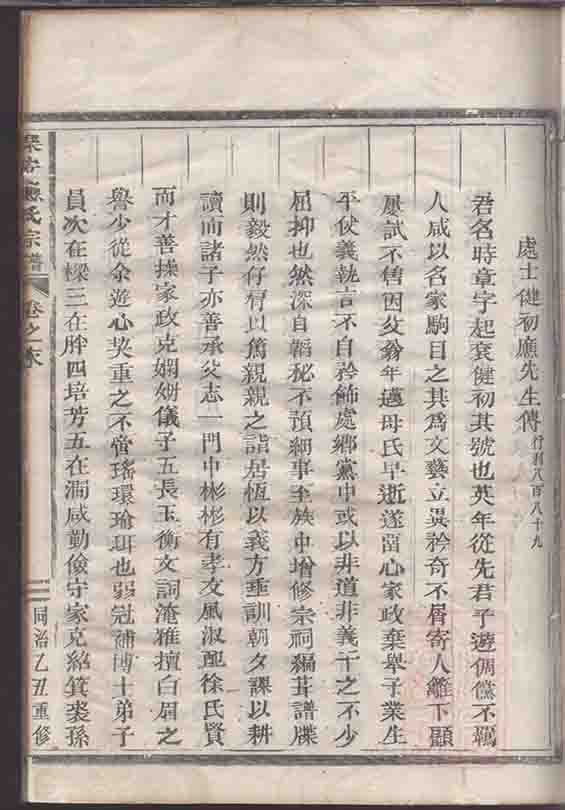 處士健初應先生傳行荆八百八十九
君名時章字起袞健初其號也英年從先君子遊倜儻不羈
人咸以名家駒目之其為文藝立異矜奇不屑寄人籬下顧
屢試不售因父翁年邁母氏早逝遂留心家政棄舉子業生
平仗義執言不自矜飾處鄉黨中或以非道非義干之不少
屈抑也然深自韜秘不預細事至族中增修宗祠編葺譜牒
則毅然仔肩以篤親親之誼居恆以義方垂訓朝夕課以耕
讀而諸子亦善承父志一門中彬彬有孝文風淑配徐氏賢
而才善操家政克嫻婣儀子五長玉衡文詞淹雅擅白眉之
譽少從余遊心契重之不啻瑤環瑜珥也弱冠補博士弟子
員次在樑三在胖四培芳五在澗咸勤儉守家克紹箕裘孫
應氏宗譜 卷之末
同治乙丑重修